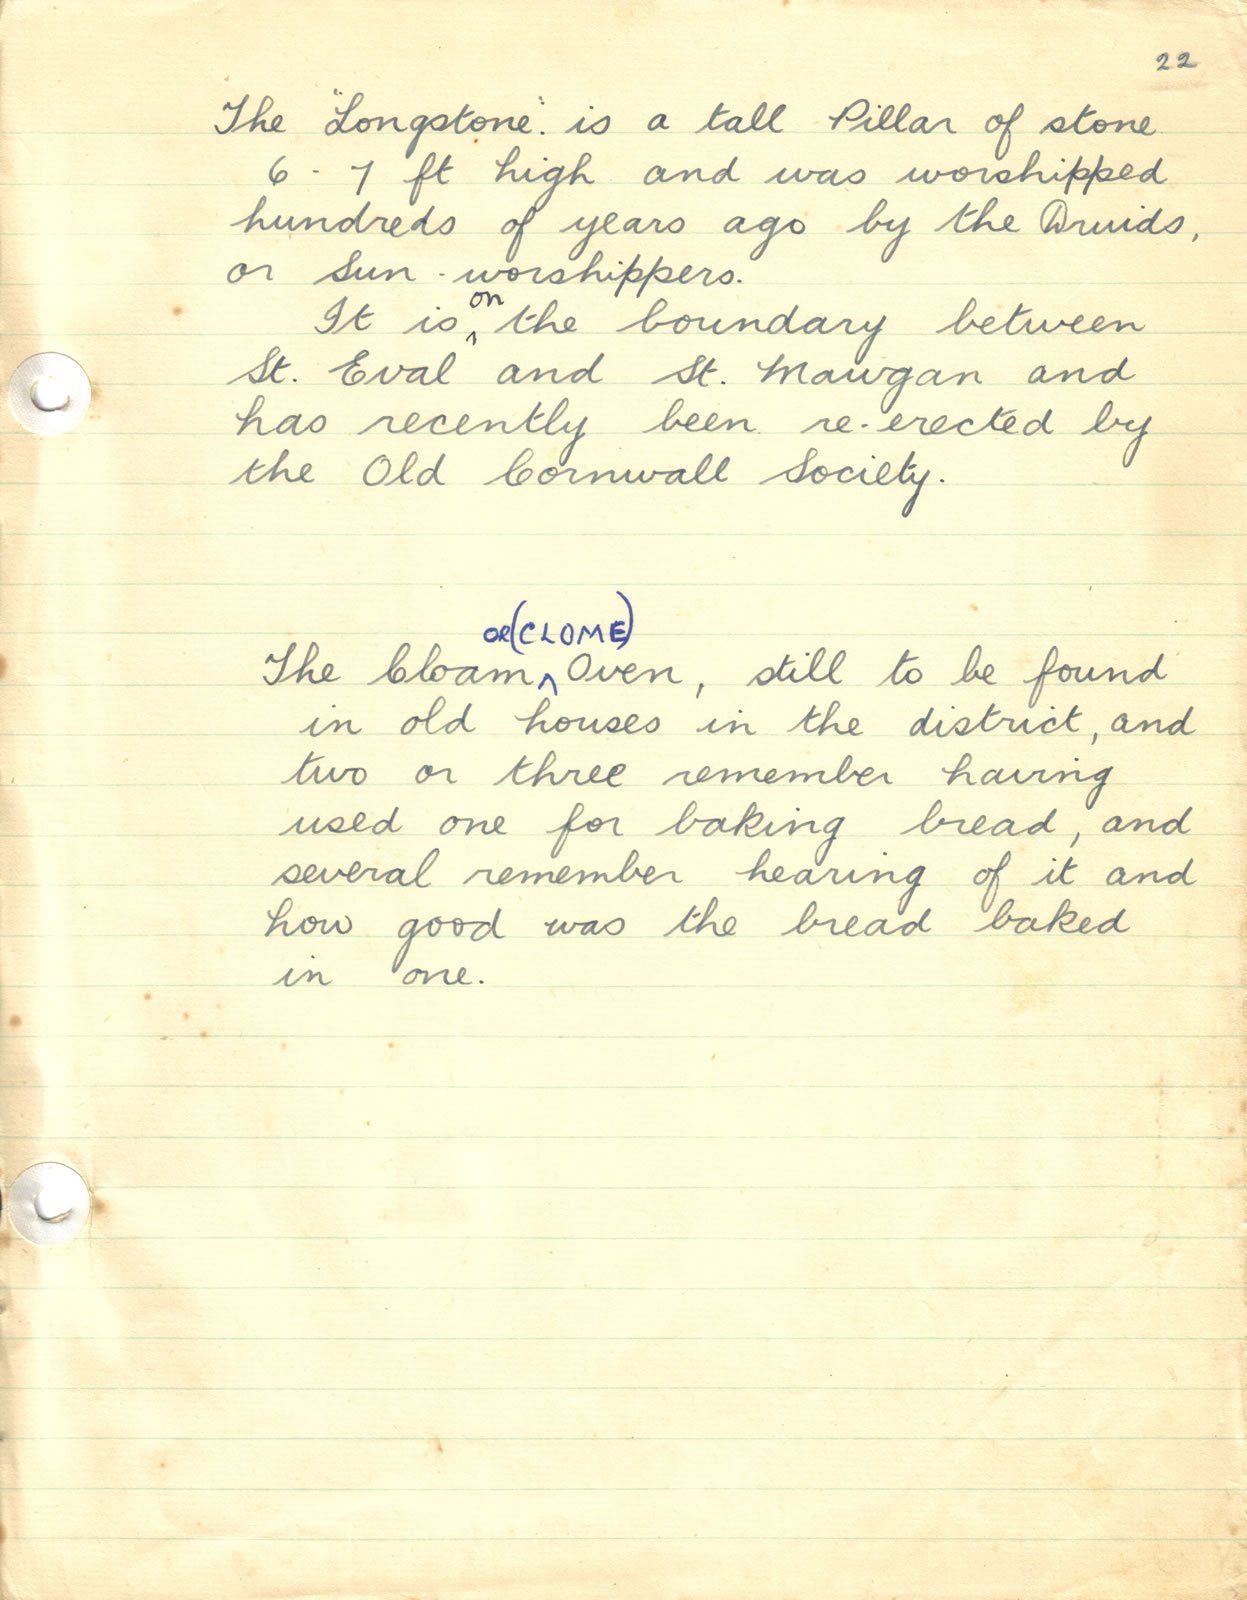 22
The "Longstone". is a tall Pillar of stone
6 - 7 ft high and was worshipped
hundreds of years ago by the Druids,
or Sun - worshippers.
on
It is ^ the boundary between
St. Eval and St. Mawgan and
has recently been re-erected by
the Old Cornwall Society.
OR (CLOME)
The Cloam ^ Oven, still to be found
in old houses in the district, and
two or three remember having
used one for baking bread, and
several remember hearing of it and
how good was the bread baked
in one.